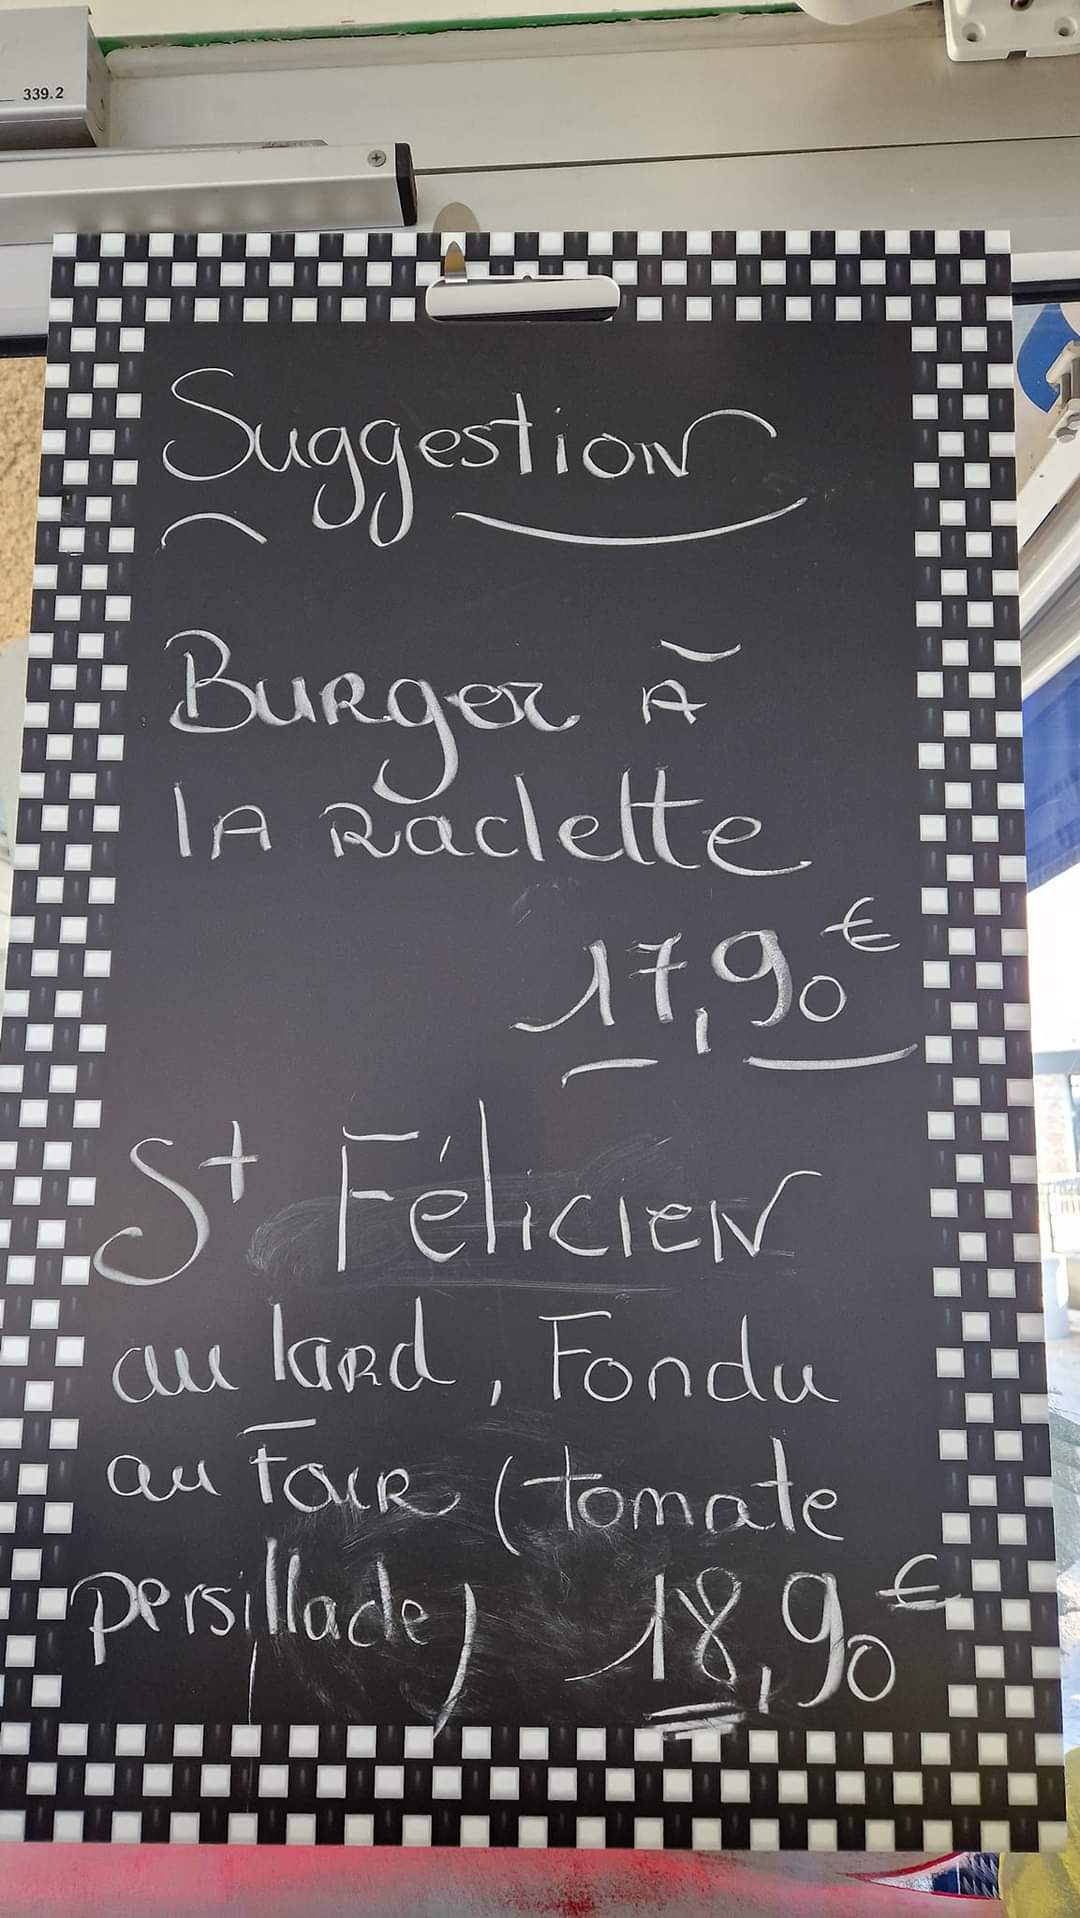 339.2
Suggestion
Burger à
la Raclette
17,90€
St Félicien
au lard, Fondu
au Four (tomate
persillade) 18,90€